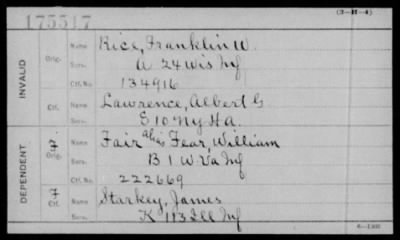 175517
(3-H-4)
INVALID
Orig.
Name Rice, Franklin W.
Serv. A 24 Wis Inf
Ctf. No. 134916
Ctf.
Name Lawrence, Albert G
Serv. E 10 Ny H A.
DEPENDENT
7 Orig.
Name Fair alias Fear, William
Serv. B 1 W Va Inf
Ctf. No. 222669
7 Ctf.
Name Starkey, James
Serv. K 113 Ill Inf